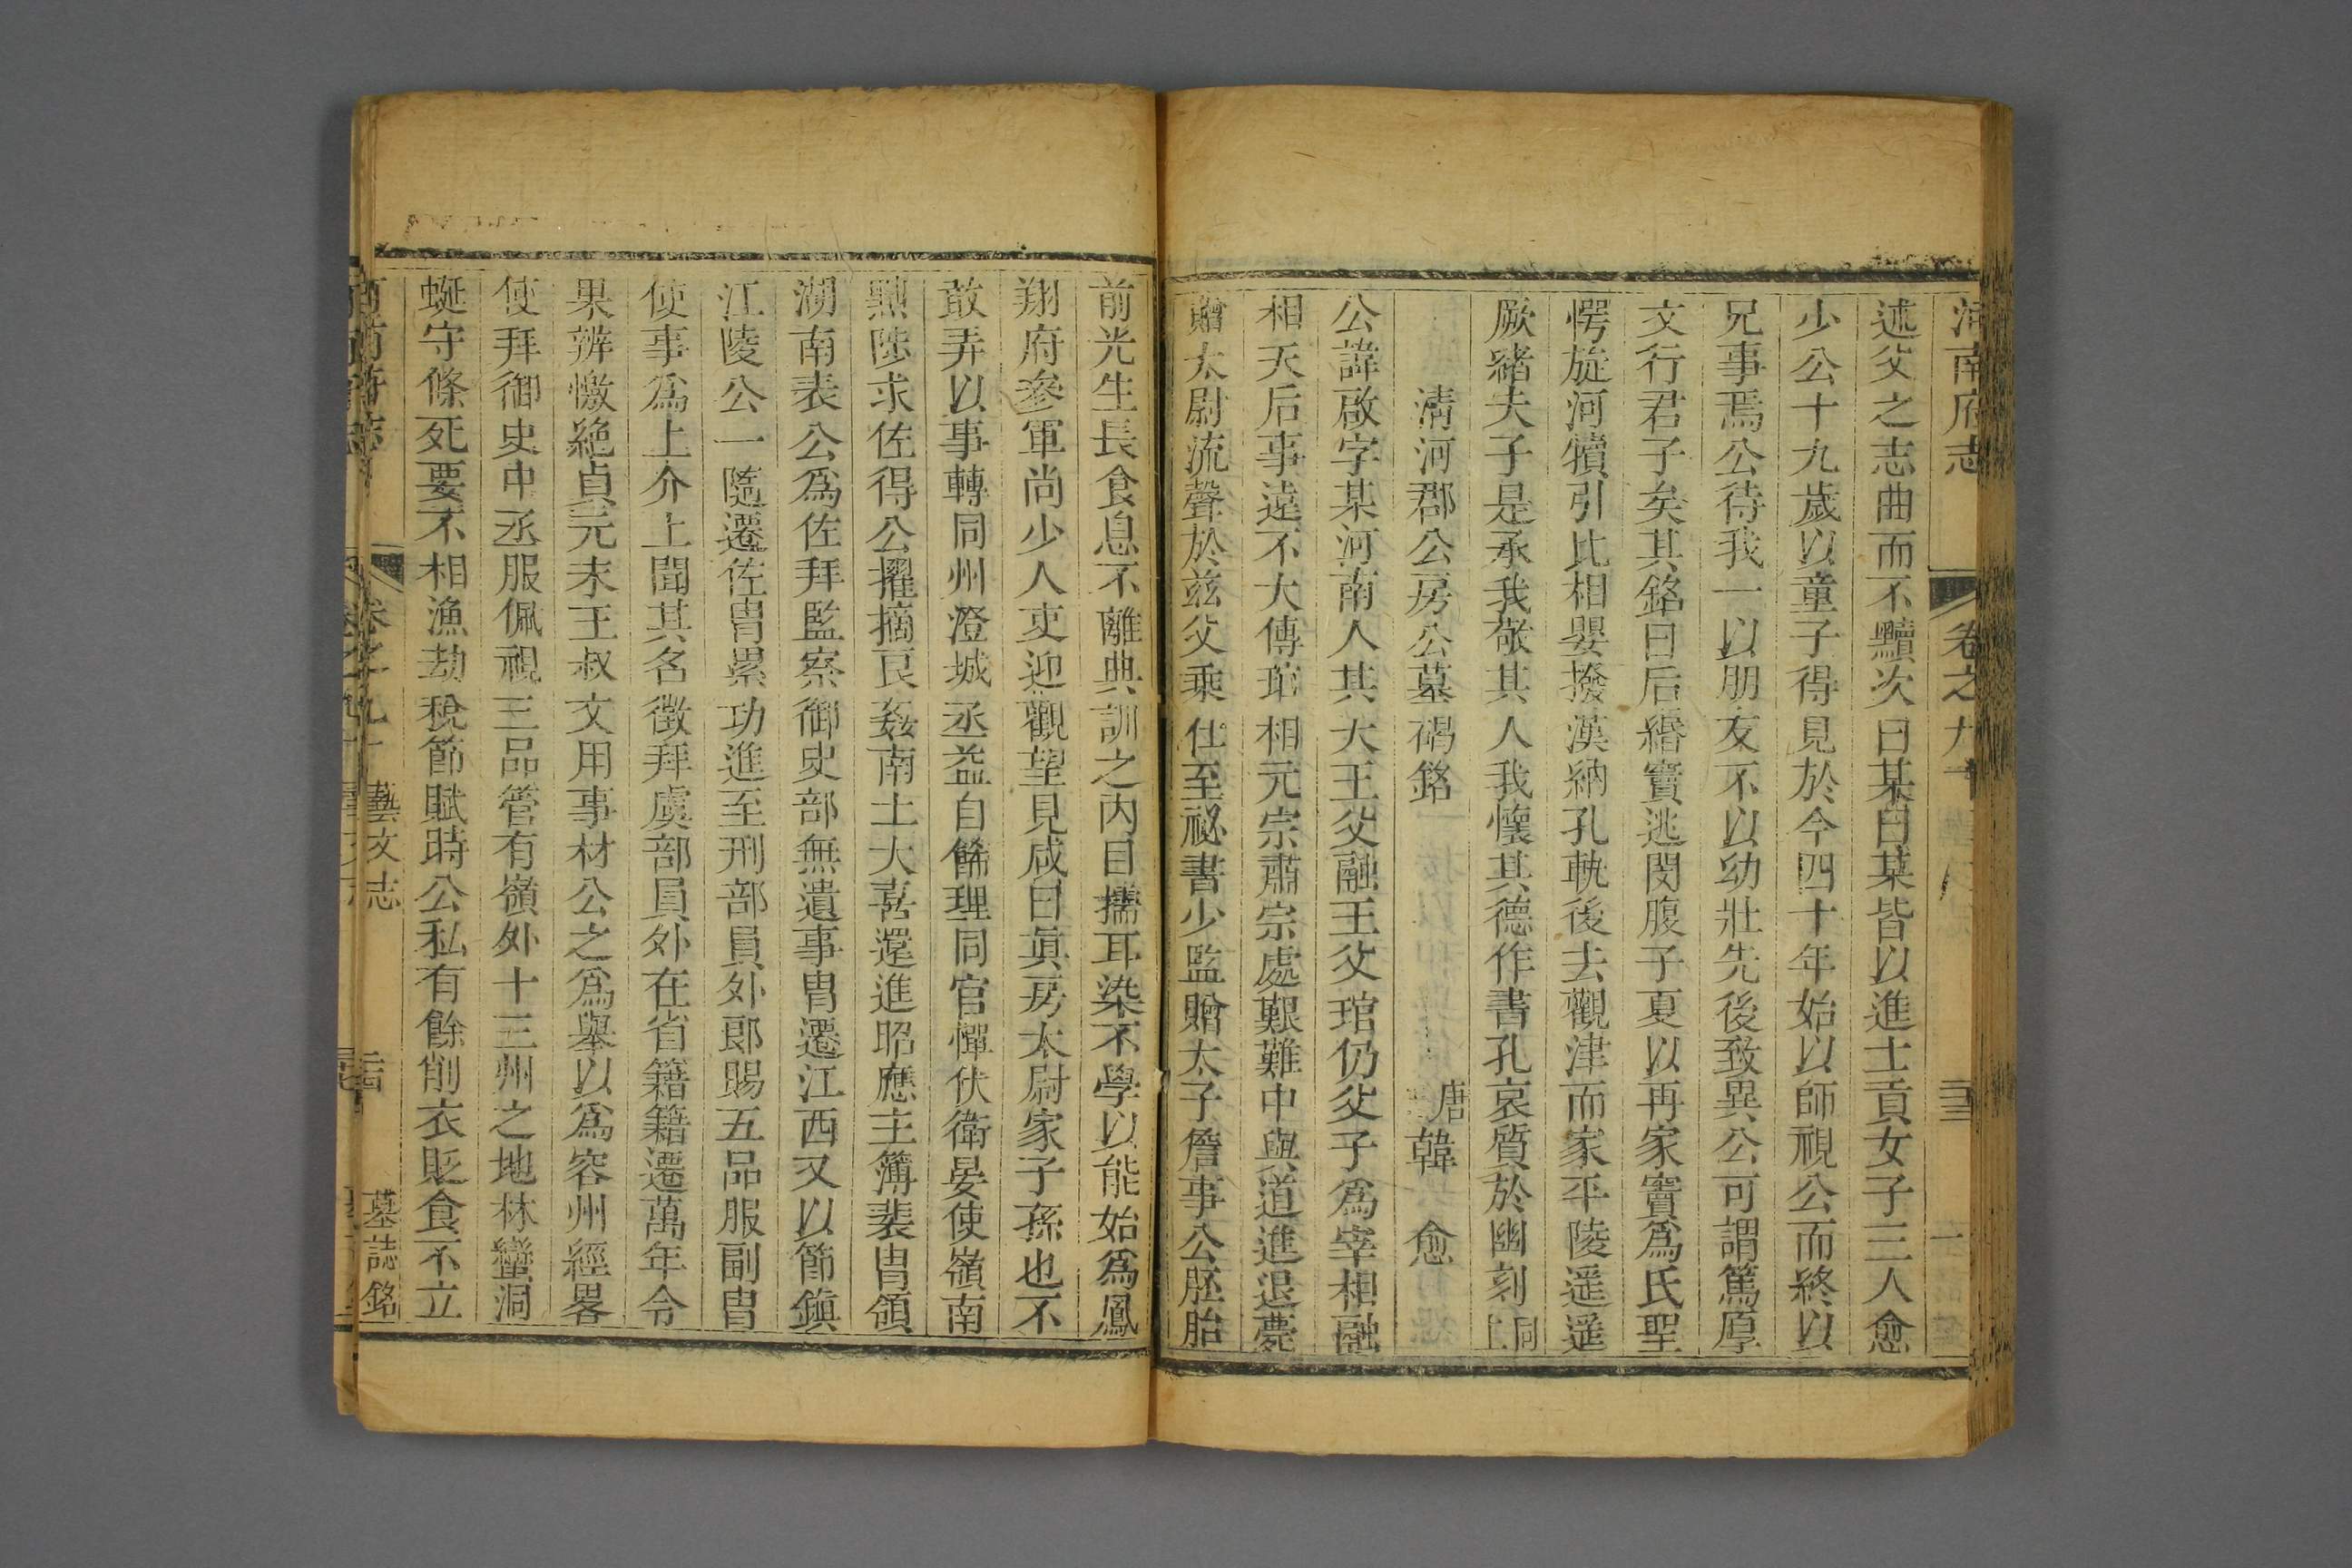 河南府志 卷之九十
述父之志曲而不黷次曰某曰某皆以進士貢女子三人愈
少公十九歲以童子得見於今四十年始以師視公而終以
兄事焉公待我一以朋友不以幼壯先後致異公可謂篤厚
文行君子矣其銘曰后緡竇逃閔腹子夏以再家竇爲氏聖
愕旋河犢引比相嬰撥漢納孔軌後去觀津而家平陵遥遥
厥緒夫子是承我敬其人我懷其德作書孔哀質於幽刻同上
清河郡公房公墓碣銘 唐韓愈
公諱啟字某河南人其大王父融王父琯仍父子爲宰相融
相天后事遠不大傳琯相元宗肅宗處艱難中與道進退薨
贈太尉流聲於兹父乘仕至祕書少監贈太子詹事公胚胎
前光生長食息不離典訓之内目擩耳染不學以能始爲鳳
翔府參軍尚少人吏迎觀望見咸曰眞房太尉家子孫也不
敢弄以事轉同州澄城丞益自餙理同官憚伏衛晏使嶺南
黜陟求佐得公擢摘良姦南土大喜還進昭應主簿裴胄領
湖南表公爲佐拜監察御史部無遺事胄遷江西又以節鎭
江陵公一隨遷佐胄累功進至刑部員外郎賜五品服副胄
使事爲上介上聞其名徵拜虞部員外在省籍籍遷萬年令
果辨憿絶貞元末王叔文用事材公之爲舉以爲容州經畧
使拜御史中丞服佩視三品管有嶺外十三州之地林蠻洞
蜒守條死要不相漁刼稅節賦時公私有餘削衣貶食不立
藝文志 墓誌銘